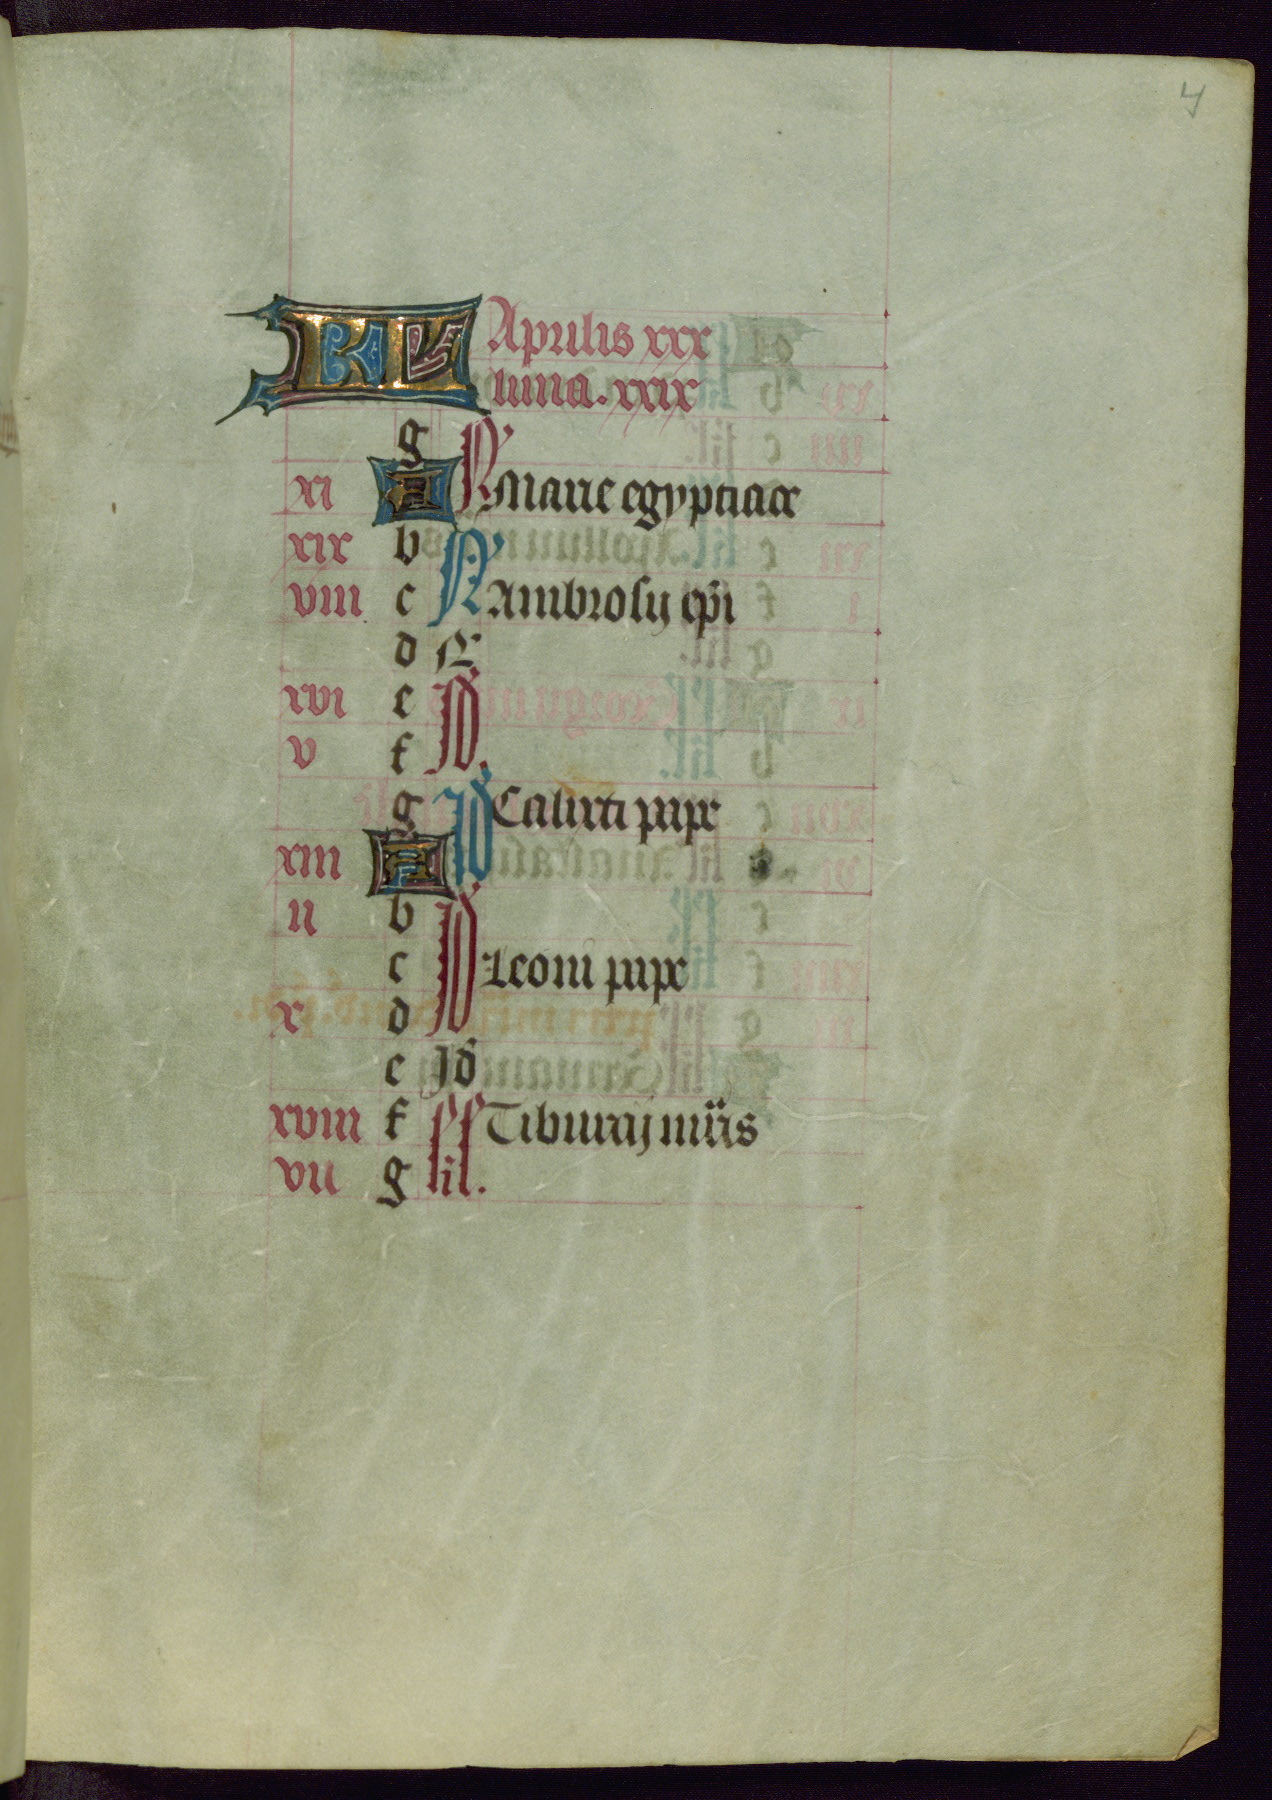 4
KL Aprilis xxx
luna. xxix
g N
xi A Marie egyptiace
xix b N
viii c Ambrosij epi
d N
xvi e Id
v f
g Id Calixti pape
xiii A
ii b Id
c Leoni pape
x d
e Id
xviii f Tiburcij mris
vii g kl.